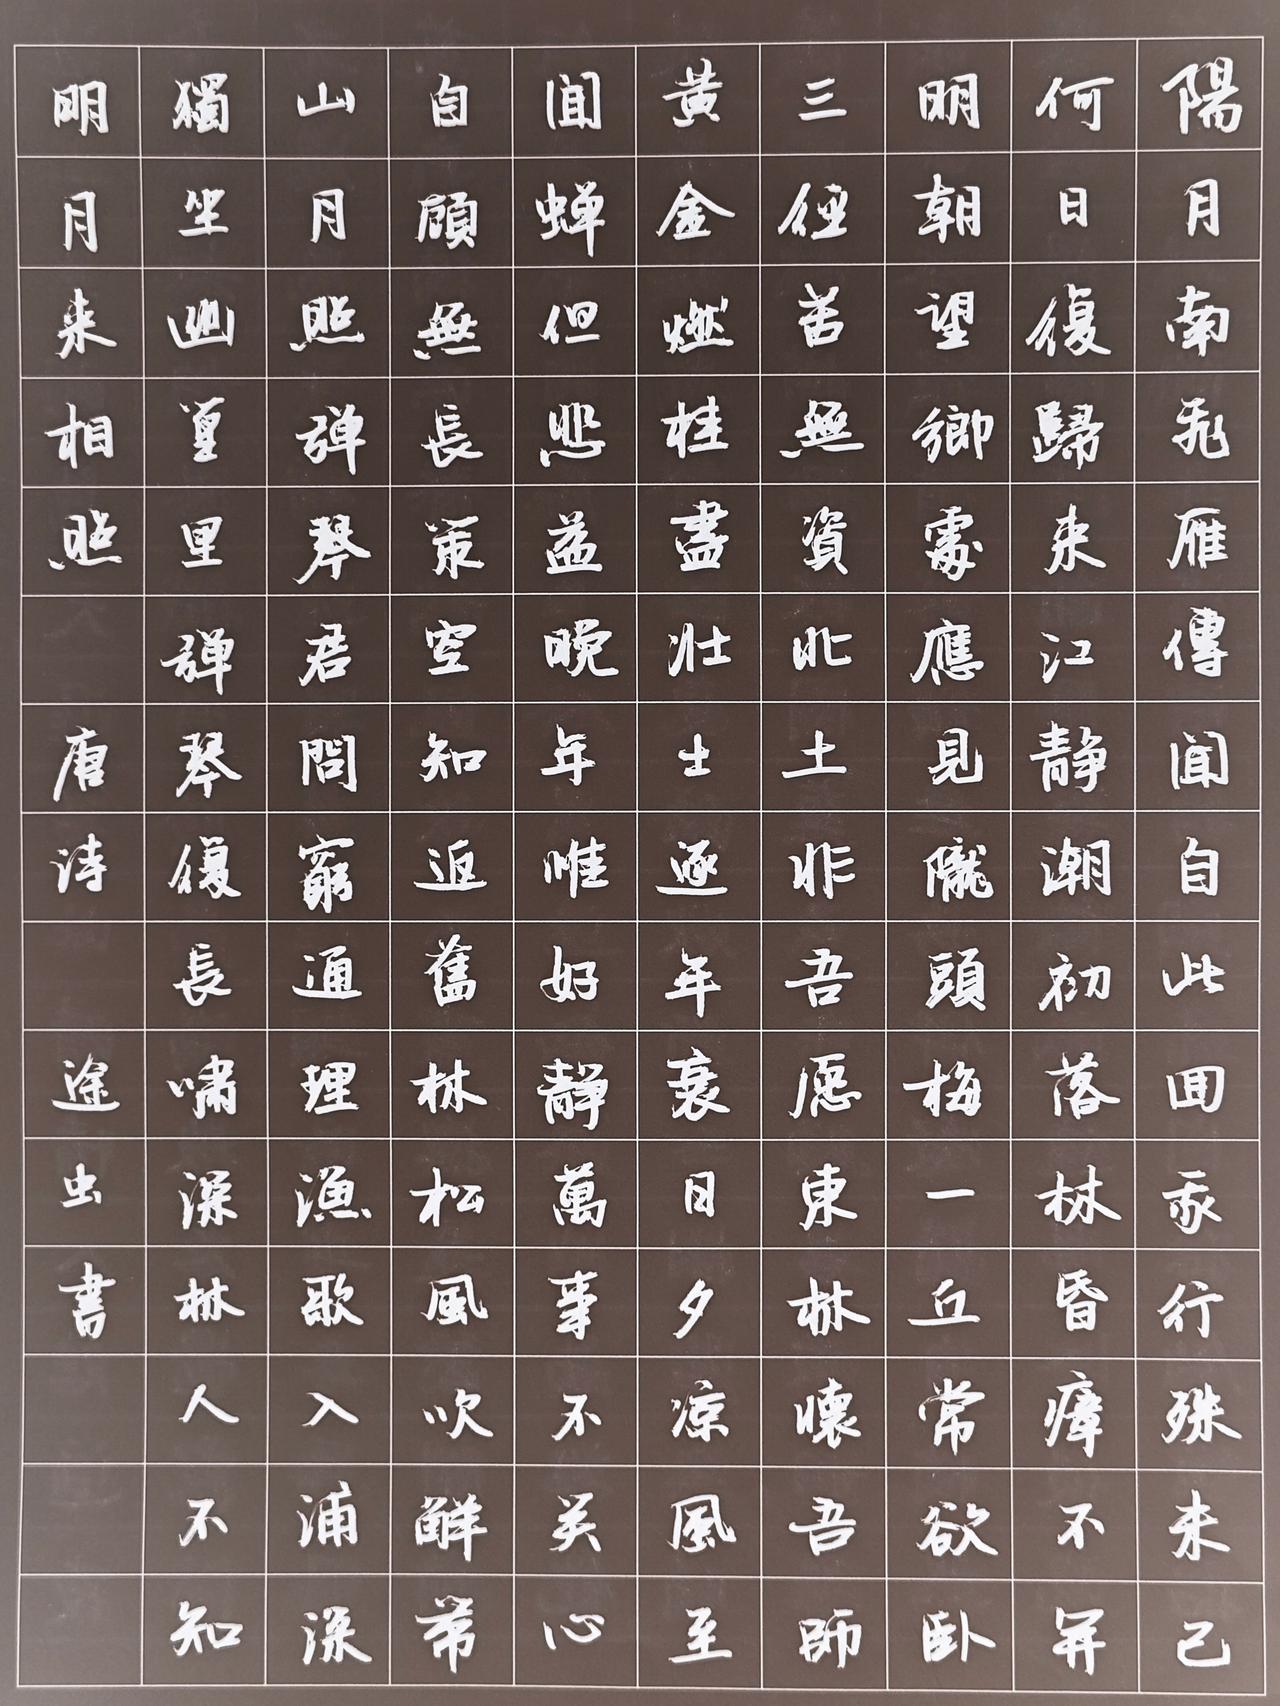 陽月南飛雁傳聞自此囬我行殊未已
何日復歸来江靜潮初落林昏瘴不開
明朝望鄉處應見隴頭梅一丘常欲卧
三徑苦無資北土非吾愿東林懷吾師
黄金燃桂盡壯士逐年衰日夕凉風至
聞蟬但悲益晚年惟好靜萬事不关心
自顧無長策空知返舊林松風吹解帶
山月照彈琴君問窮通理漁歌入浦深
獨坐幽篁里彈琴復長嘯深林人不知
明月来相照 唐詩 途虫書